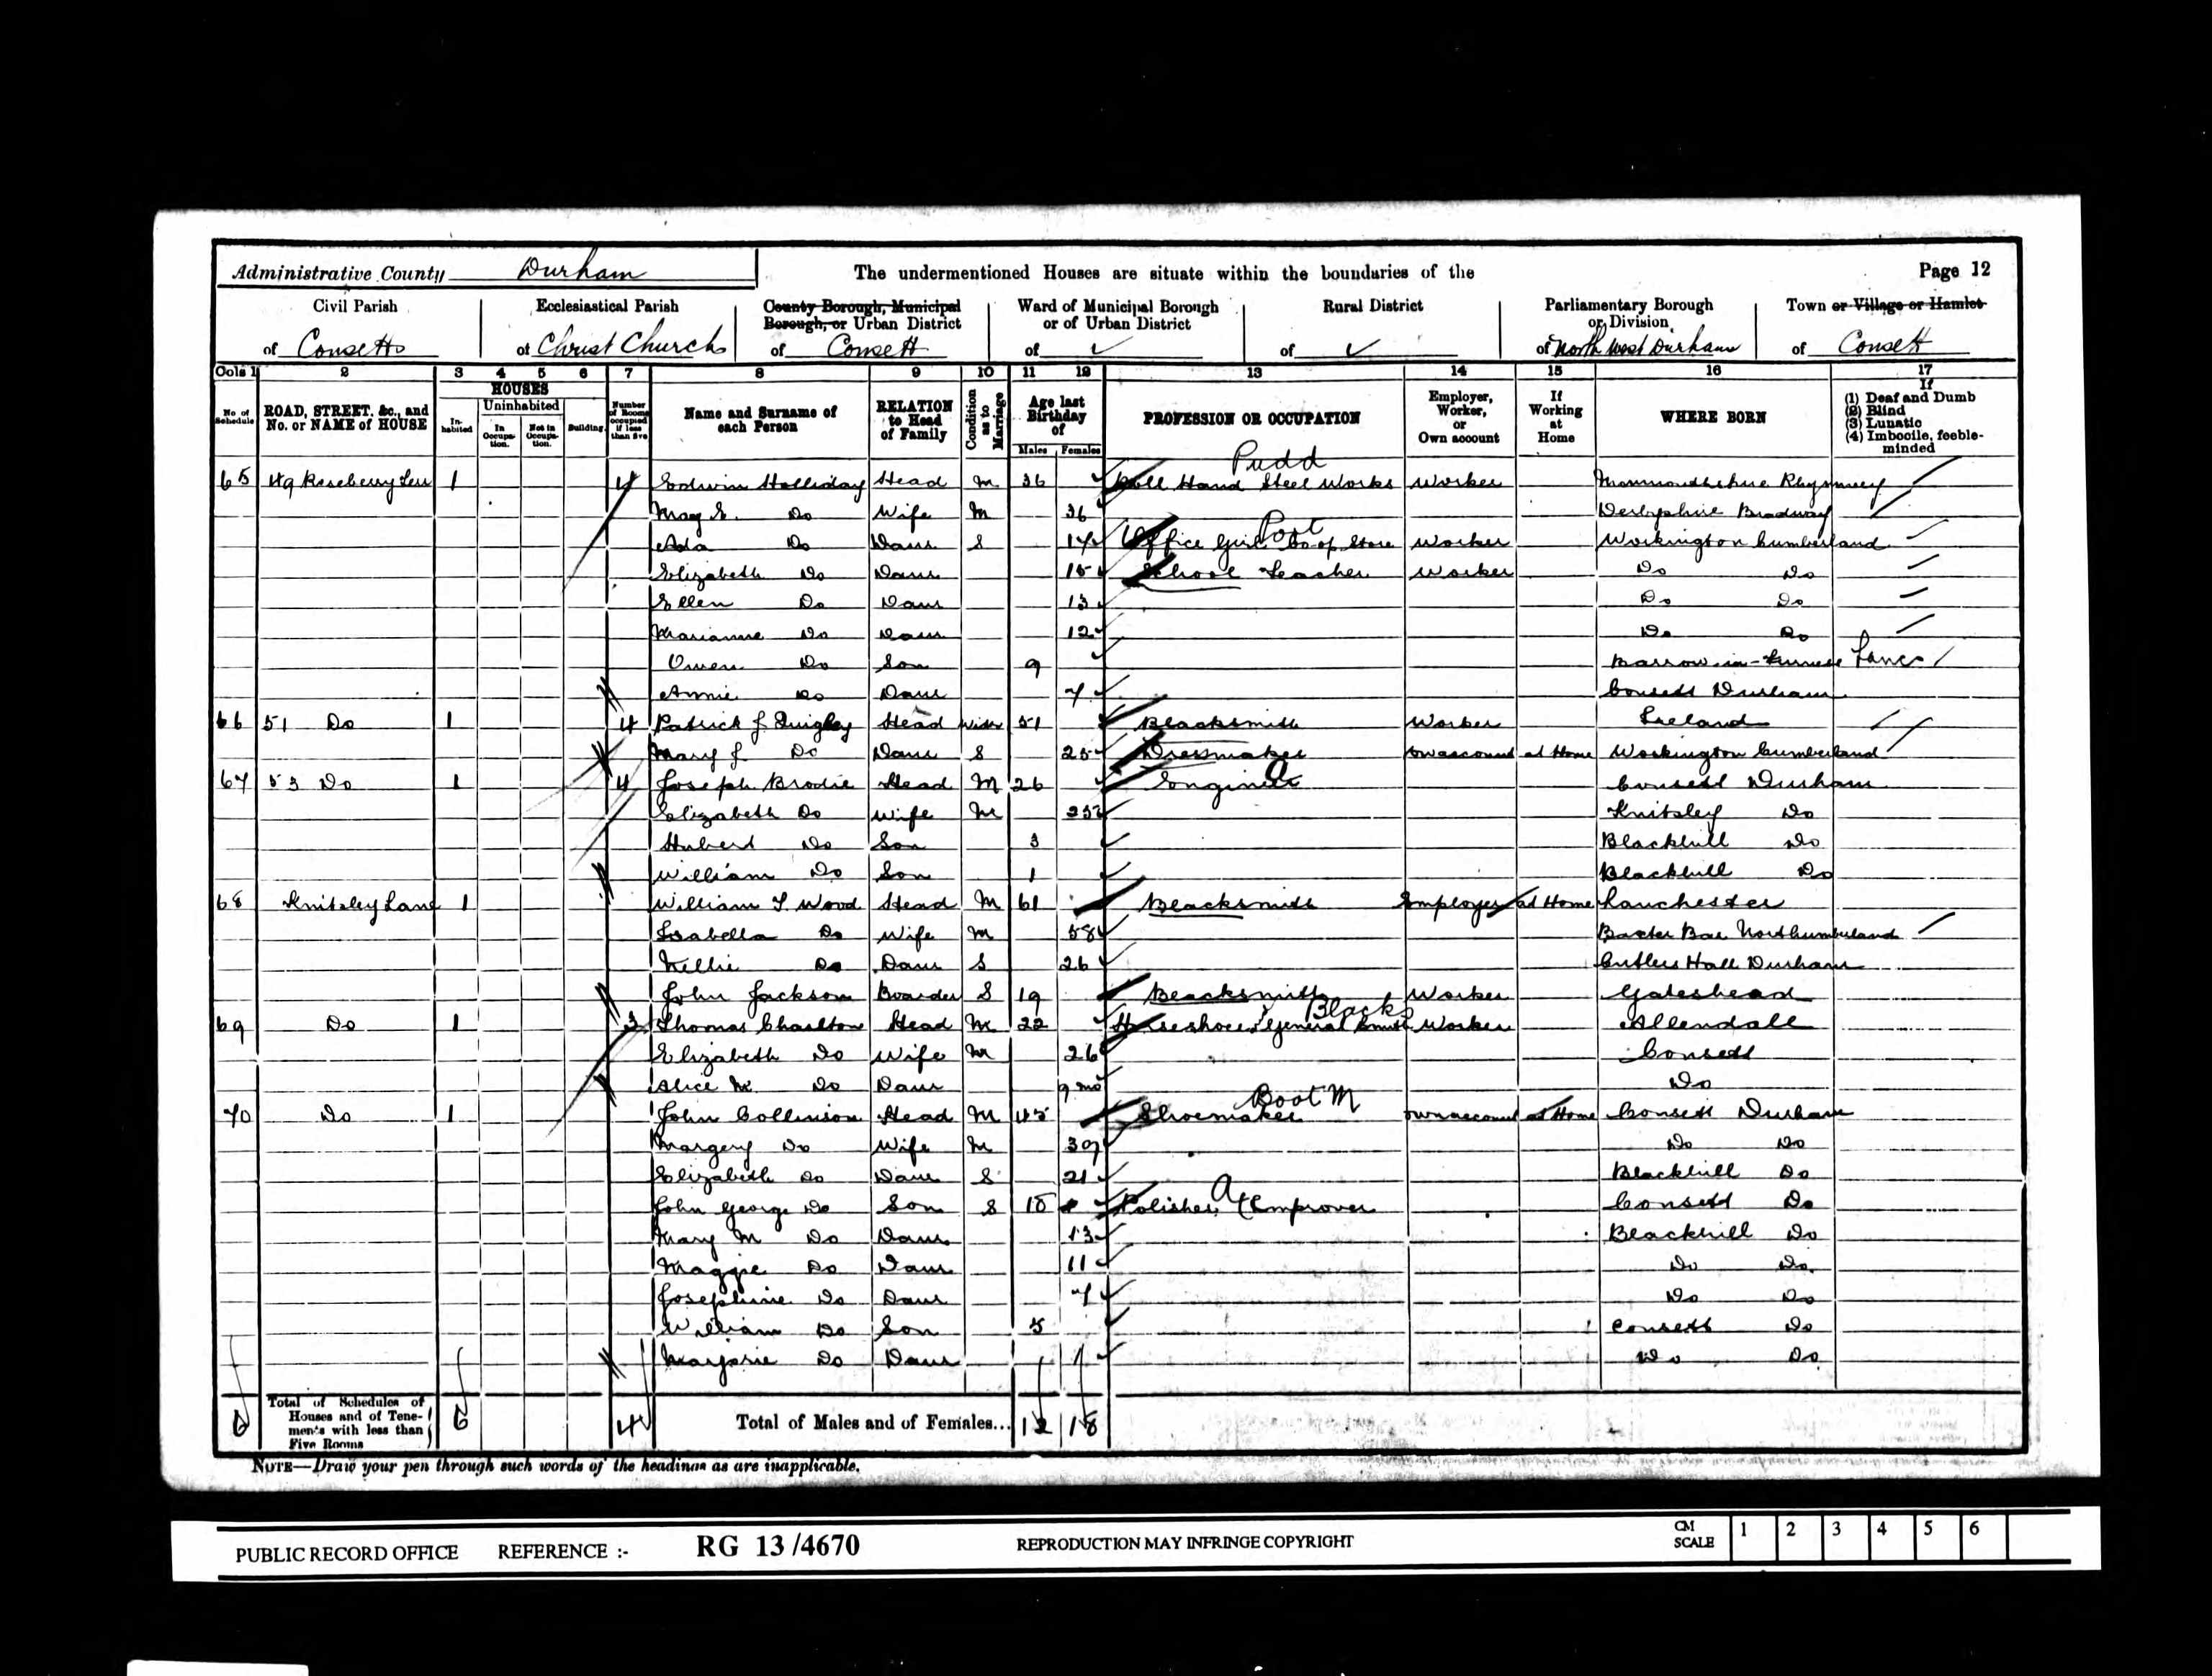 Administrative County Durham The undermentioned Houses are situate within the boundaries of the Page 12
Civil Parish Ecclesiastical Parish County Borough, Municipal Borough, or Urban District Ward of Municipal Borough or of Urban District Rural District Parliamentary Borough or Division Town or Village or Hamlet
of Consett of Christ Church of Consett of of of North West Durham of Consett
Cols 1 2 3 4 5 6 7 8 9 10 11 12 13 14 15 16 17
No of Schedule ROAD, STREET, &c., and No. or NAME of HOUSE HOUSES Inhabited Uninhabited In Occupation. Not in Occupation. Building. Number of Rooms occupied if less than five Name and Surname of each Person RELATION to Head of Family Condition as to Marriage Age last Birthday of Males Females PROFESSION OR OCCUPATION Employer, Worker, or Own account If Working at Home WHERE BORN If (1) Deaf and Dumb (2) Blind (3) Lunatic (4) Imbecile, feeble-minded
Pudd
65 49 Roseberry Terr 1 4 Edwin Holliday Head M 36 Roll Hand Steel Works Worker Monmouthshire Rhymney
Mary E. Do Wife M 36 Derbyshire Bradway
Post
Ada Do Daur S 17 Office Girl Co-op Store Worker Workington Cumberland
Elizabeth Do Daur 15 School Teacher Worker Do Do
Ellen Do Daur 13 Do Do
Marianne Do Daur 12 Do Do
Owen Do Son 9 Barrow-in-Furness Lancs
Annie Do Daur 7 Consett Durham
66 51 Do 1 4 Patrick J Quigley Head Widr 51 Blacksmith Worker Ireland
Mary J Do Daur S 25 Dressmaker own account at Home Workington Cumberland
67 53 Do 1 4 Joseph Brodie Head M 26 Consett Durham
Elizabeth Do Wife M 25 Knitsley Do
Hubert Do Son 3 Blackhill Do
William Do Son 1 Blackhill Do
68 Knitsley Lane 1 William T Wood Head M 61 Blacksmith Employer at Home Lanchester
Isabella Do Wife M 58 Northumberland
Nellie Do Daur S 26 Cutlers Hall Durham
John Jackson Boarder S 19 Blacksmith Worker Gateshead
Blacks
69 Do 1 3 Thomas Charlton Head M 22 Horseshoer & General Smith Worker Allendall
Elizabeth Do Wife M 26 Consett
Alice M. Do Daur 9 mo Do
Boot M
70 Do 1 John Collinson Head M 43 Shoemaker own account at Home Consett Durham
Margery Do Wife M 39 Do Do
Elizabeth Do Daur S 21 Blackhill Do
John George Do Son S 18 Polisher (Improver Consett Do
Mary M Do Daur 13 Blackhill Do
Maggie Do Daur 11 Do Do
Josephine Do Daur 7 Do Do
William Do Son 5 Consett Do
Marjorie Do Daur 1 Do Do
6 Total of Schedules of Houses and of Tenements with less than Five Rooms 6 4 Total of Males and of Females... 12 18
NOTE—Draw your pen through such words of the headings as are inapplicable.
PUBLIC RECORD OFFICE REFERENCE :- RG 13/4670 REPRODUCTION MAY INFRINGE COPYRIGHT CM SCALE 1 2 3 4 5 6